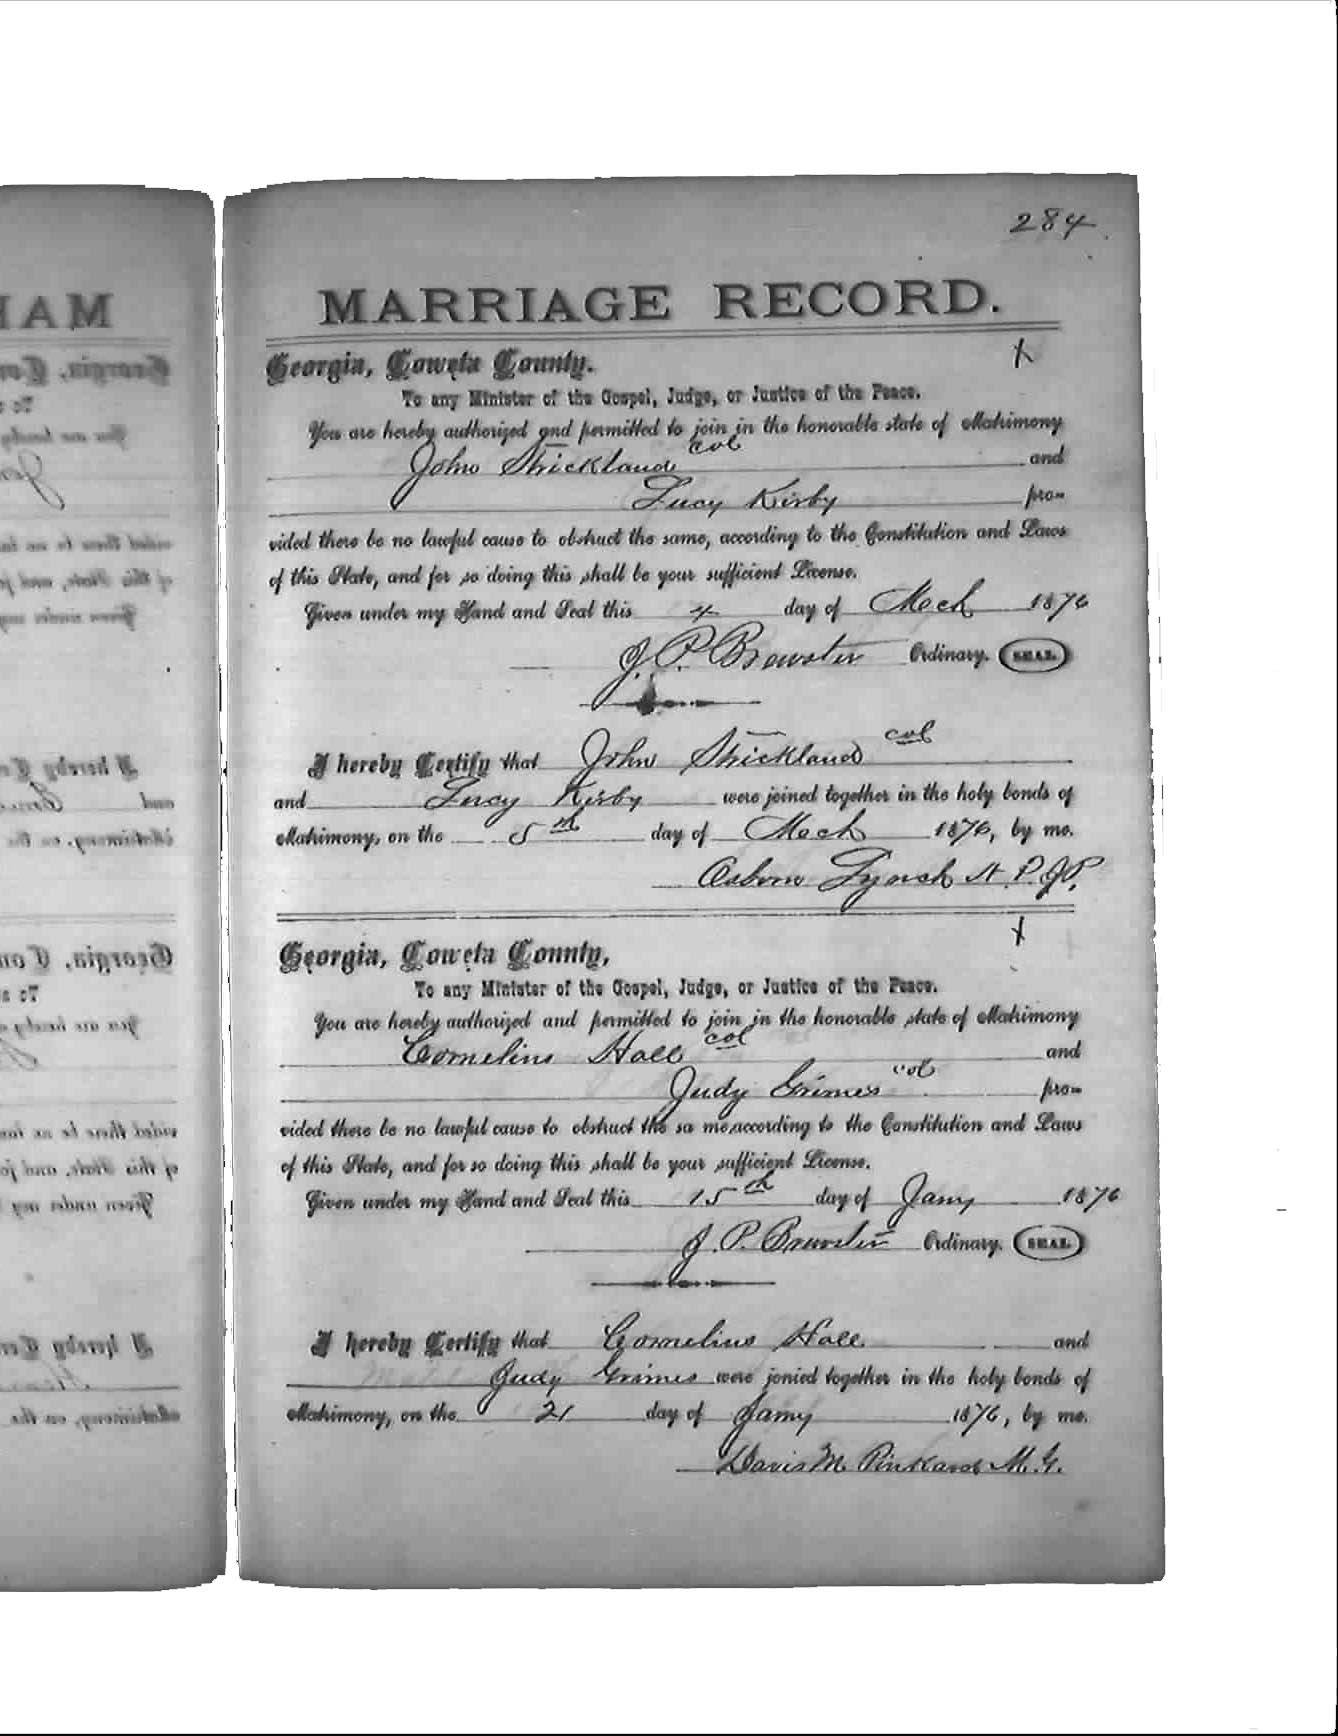 284
MARRIAGE RECORD.
Georgia, Coweta County.
To any Minister of the Gospel, Judge, or Justice of the Peace.
You are hereby authorized and permitted to join in the honorable state of Matrimony
John Strickland col and
Lucy Kirby pro-
vided there be no lawful cause to obstruct the same, according to the Constitution and Laws
of this State, and for so doing this shall be your sufficient License.
Given under my Hand and Seal this 4 day of Mech 1876
J. P. Brewster Ordinary. SEAL
I hereby Certify that John Strickland col
and Lucy Kirby were joined together in the holy bonds of
Matrimony, on the 5th day of Mech 1876, by me.
Osborn Lynch N. P. J P.
Georgia, Coweta County,
To any Minister of the Gospel, Judge, or Justice of the Peace.
You are hereby authorized and permitted to join in the honorable state of Matrimony
Cornelius Hall col and
Judy Grimes col pro-
vided there be no lawful cause to obstruct the sa me,according to the Constitution and Laws
of this State, and for so doing this shall be your sufficient License.
Given under my Hand and Seal this 15th day of Jany 1876
J. P. Brewster Ordinary. SEAL
I hereby Certify that Cornelius Hall and
Judy Grimes were jonied together in the holy bonds of
Matrimony, on the 21 day of Jany 1876, by me.
Davis M Pinkard M. G.